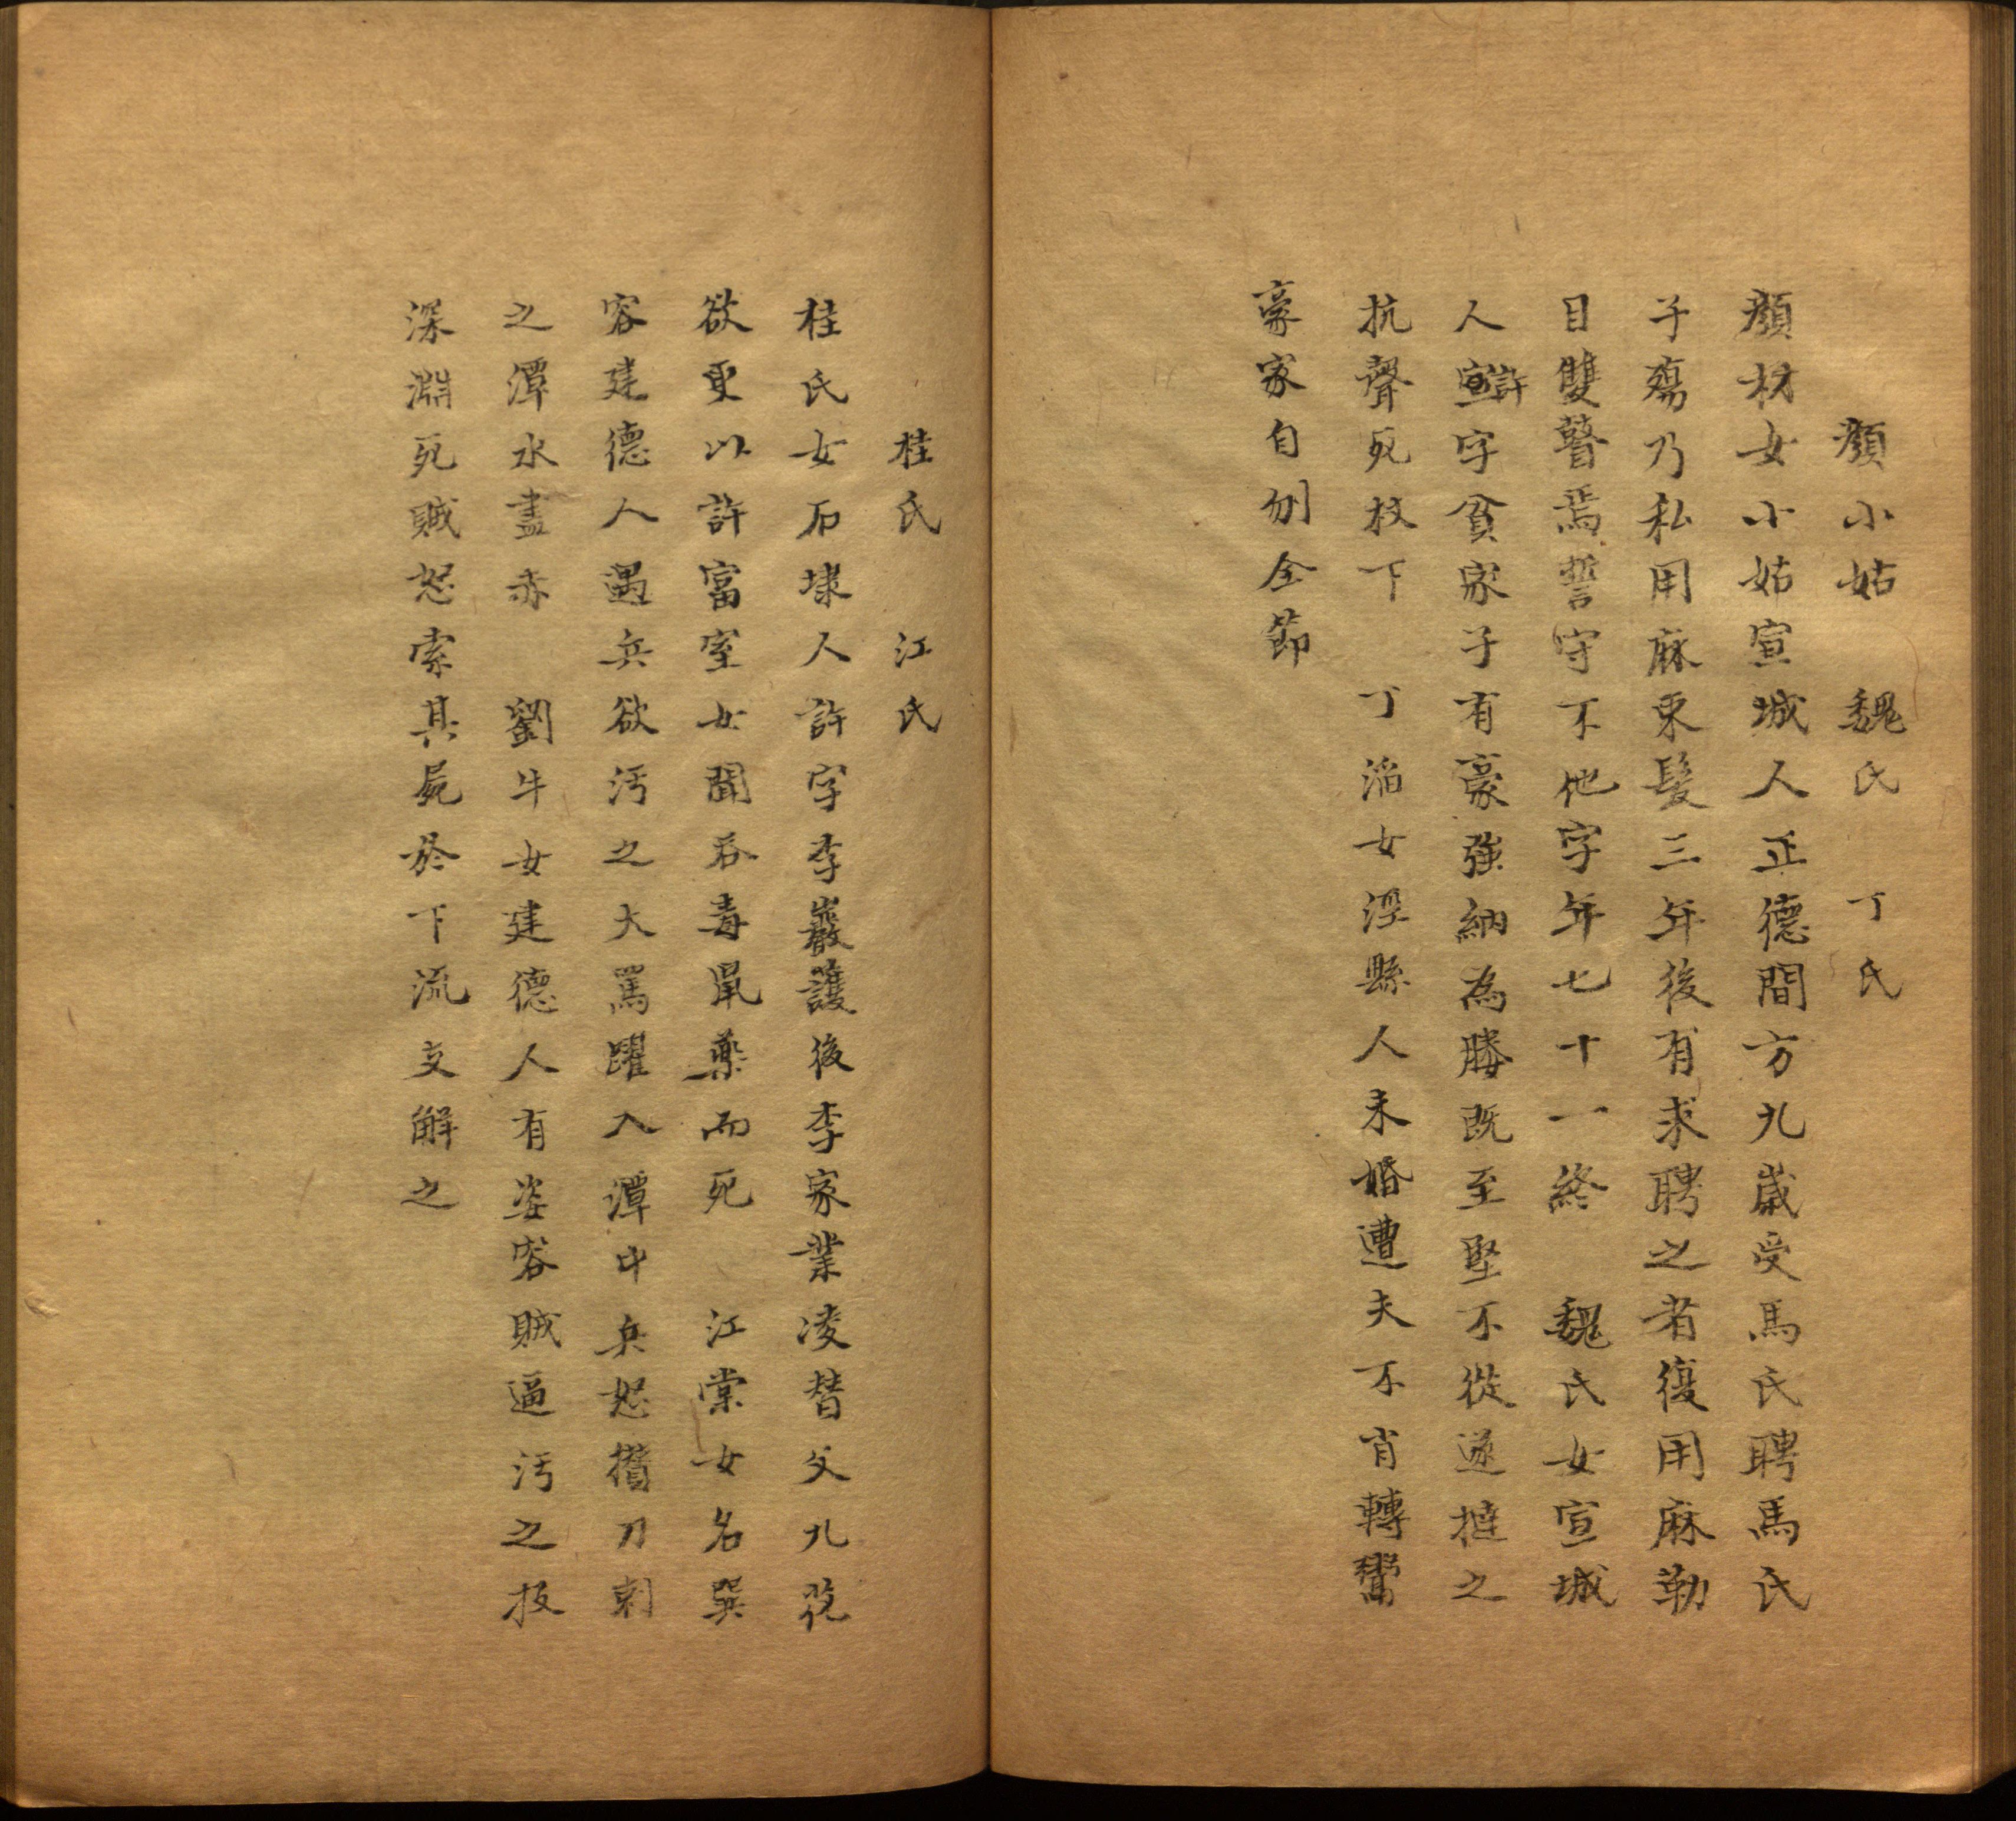 顏小姑 魏氏 丁氏
顏材女小姑宣城人正德間方九歲受馬氏聘馬氏
子殤乃私用麻束髮三年後有求聘之者復用麻勒
目雙瞽焉誓守不他字年七十一終 魏氏女宣城
人許字貧家子有豪強納為媵既至堅不從遂撻之
抗聲死杖下 丁滔女涇縣人未婚遭夫不肖轉鬻
豪家自刎全節
桂氏 江氏
桂氏女石埭人許字李巖護後李家業凌替父九苞
欲更以許富室女聞吞毒鼠藥而死 江棠女名巽
容建德人遇兵欲污之大罵躍入潭中兵怒攢刀刺
之潭水盡赤 劉牛女建德人有姿容賊逼污之投
深淵死賊怒索其屍於下流支解之